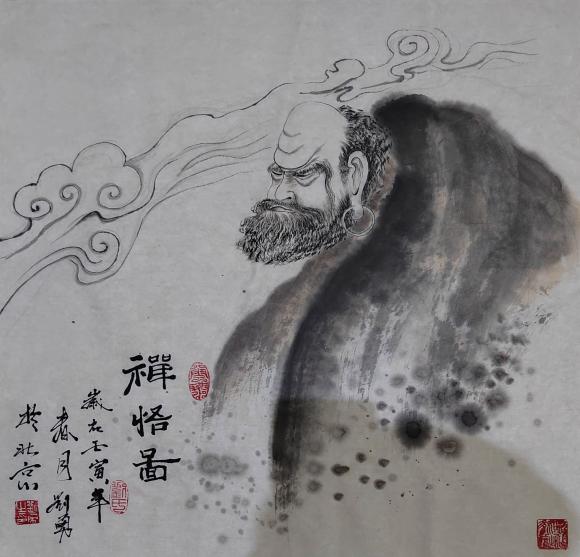 禪悟圖
歲在壬寅年
春月刘勇
於北京